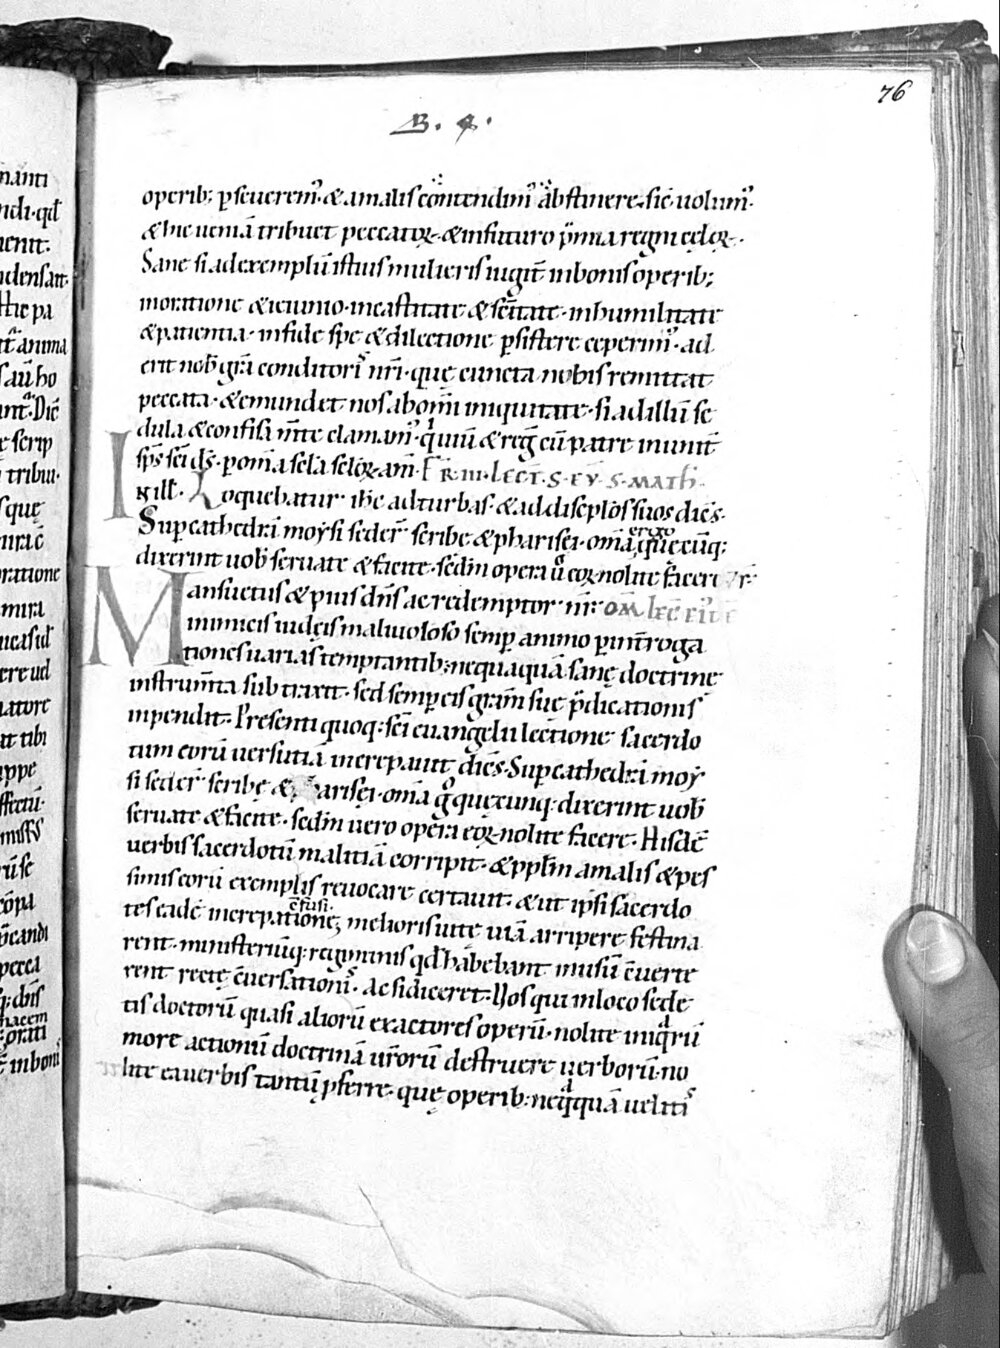 76
B. 4.
operib; pseuerem᷒. & a malis contendim᷒ abstinere. sic uolum᷒.
& hic ueniā tribuet peccatoꝝ. & in futuro p̄mia regni cęloꝝ.
Sane si ad exemplū istius mulieris iugit̄ in bonis operib;
in oratione & ieiunio. in castitate & sc̄itate. in humilitate
& patientia. in fide spe & dilectione psistere ceperim᷒. ad
erit nob̄ gr̄a conditoris nr̄i. quę cuncta nobis remittat
peccata. & emundet nos ab om̄i iniquitate. si ad illū se
dula & confisi m̄te clamam᷒. qui uiu & reg cū patre in unit̄
sp̄s sc̄i d̄s. p om̄a sc̄la sc̄loꝝ. am̄. FR III. LECT. S. EV. S. MATH̄.
In ill̄. Loquebatur ih̄c ad turbas. & ad discip̄los suos dicēs.
Sup cathedrā moysi seder̄ scribe & pharisei. om̄a ergo quęcūq;
dixerint uob̄ seruate & facite. sed m̄ opera ů eoꝝ nolite facere
Mansuetus & pius dn̄s ac redemptor nr̄. OM̄ lec̄ ei᷒de
inimicis iudęis maliuoloso semp animo p int̄roga
tiones uarias temptantib; nequaquā sanę doctrinę
instrum̄ta subtraxit. sed semp eis gratiam suę p̄dicationis
inpendit. Presenti quoq; sc̄i euangelii lectione sacerdo
tum eorū uersutiā increpauit dicēs. Sup cathedrā moy
si seder̄ scribę & pharisęi. om̄a g̊ quęcunq; dixerint uob̄
seruate & facite. sed m̄ uero opera eoꝝ nolite facere. His dc̄
uerbis sacerdotū malitiā corripit. & pp̄lm a malis & pes
simis eorū exemplis reuocare certauit. & ut ipsi sacerdo
tes eadē increpatione cf̄usi melioris uitę uiā arripere festina
rent. ministeriūq; regiminis qd̄ habebant in usū c̄uerte
rent rectę c̄uersationis. ac si diceret. Uos qui in loco sede
tis doctorū quasi aliorū exactores operū. nolite iniqrū
more actionū doctrinā ur̄orū destruere uerborū. no
lite ea uerbis tantū pferre. quę operib; neqquā uelitis